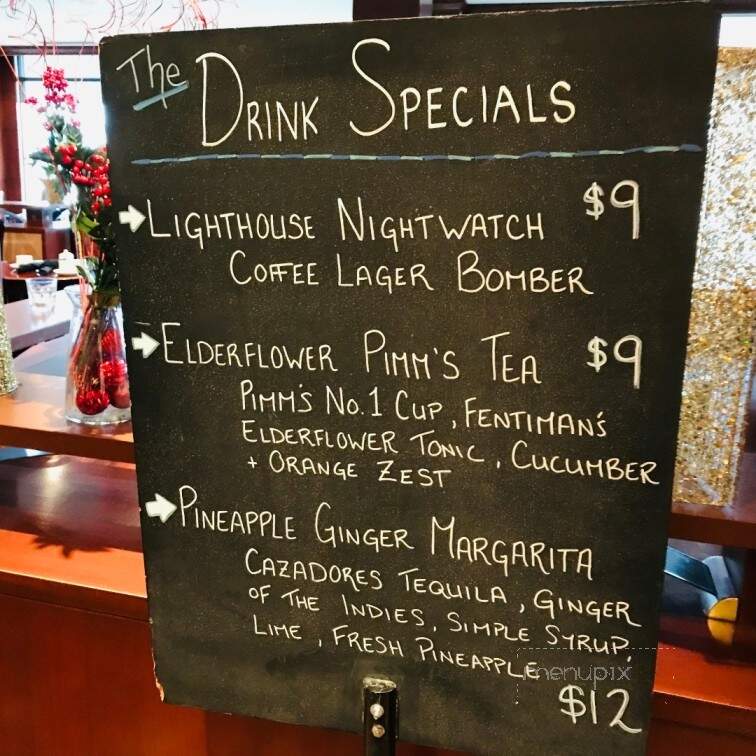 The DRINK SPECIALS
LIGHTHOUSE NIGHTWATCH $9
COFFEE LAGER BOMBER
ELDERFLOWER PIMM'S TEA $9
PIMM'S No.1 CUP, FENTIMAN'S
ELDERFLOWER TONIC, CUCUMBER
+ ORANGE ZEST
PINEAPPLE GINGER MARGARITA
CAZADORES TEQUILA, GINGER
OF THE INDIES, SIMPLE SYRUP,
LIME, FRESH PINEAPPLE
menupix
$12